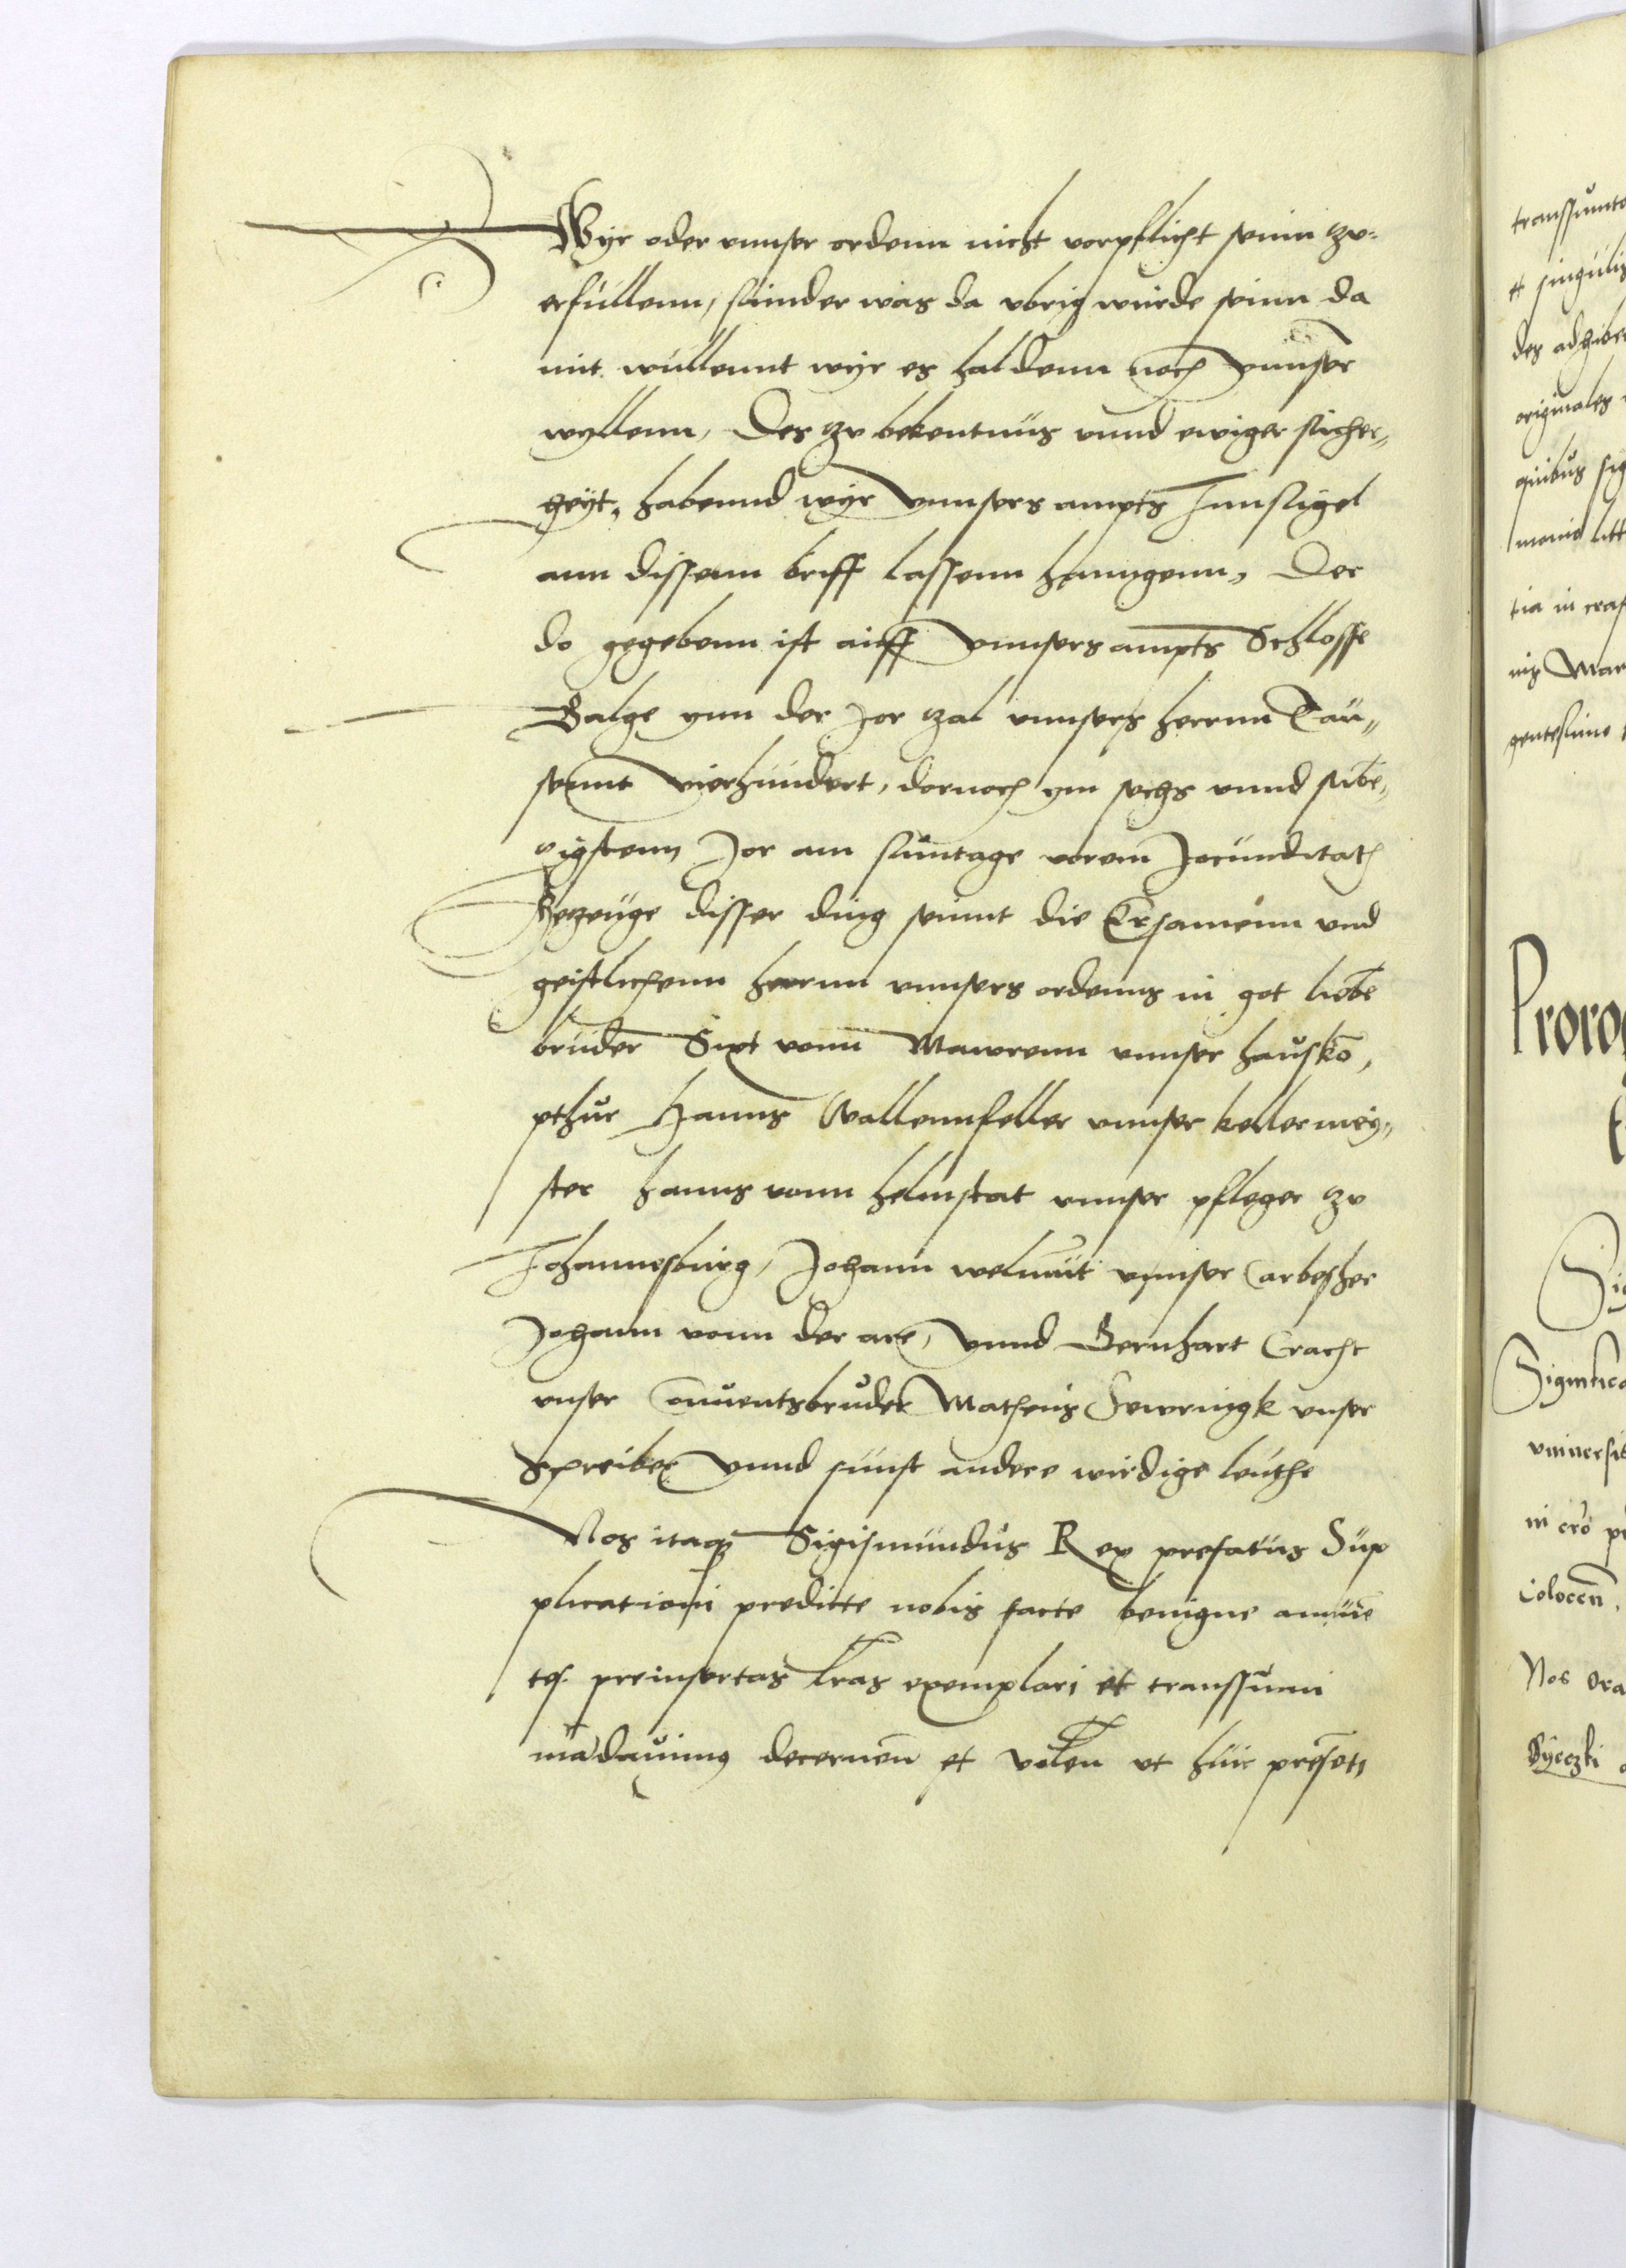 Wyr oder vnnser ordenn nicht vorpflicht seinn zv-
erfullenn, sunder was da vbrig wurde seinn da
mit wullennt wyr es haldenn noch vnnserm
wyllenn, Des zv bekentnus vnnd ewiger sicher„
heyt, habennd wyr vnnsers ampts Innsigel
ann dissenn briff lassenn hanngenn, Der
do gegebenn ist auff vnnsers ampts Schlosse
Balge ynn der Jor zal vnnsers herrnn Tau„
sennt vierhundert, dornoch ym sechs vnnd sibe„
zigstenn Jor am suntage vorem Jocunditatz
Gezeuge disser ding seinnt die Ersamenn vnd
geistlichenn herrnn vnnsers ordenns in got liebe
bruder Sixt vonn Mawrenn vnnser hausko„
pthur Hanns Wallennfeller vnnser kellermey„
ster hanns vonn helmstat vnnser pfleger zv
Johannesburg, Johann welmut vnnser Carbesher
Johann vonn der are, vnnd Bernhart Cracht
vnser Conuentsbruder Matheus Sewrnigk vnser
Schreiber vnnd sunst andere wirdige leuthe
Nos itaq; Sigismundus Rex prefatus Sup
plicationi predicte nobis facte benigne annue
tes. preinsertas lras exemplari et transsumi
mādauimus decernen̄ et volen̄ vt huic presēti
transsumto
et singulis
des adhiber
originales
quibus sig
monio litt
tia in cras
nis Mar
gentesimo
Prorog
Sigismu
vniuersis
in cro p
Colocen̄.
Nos